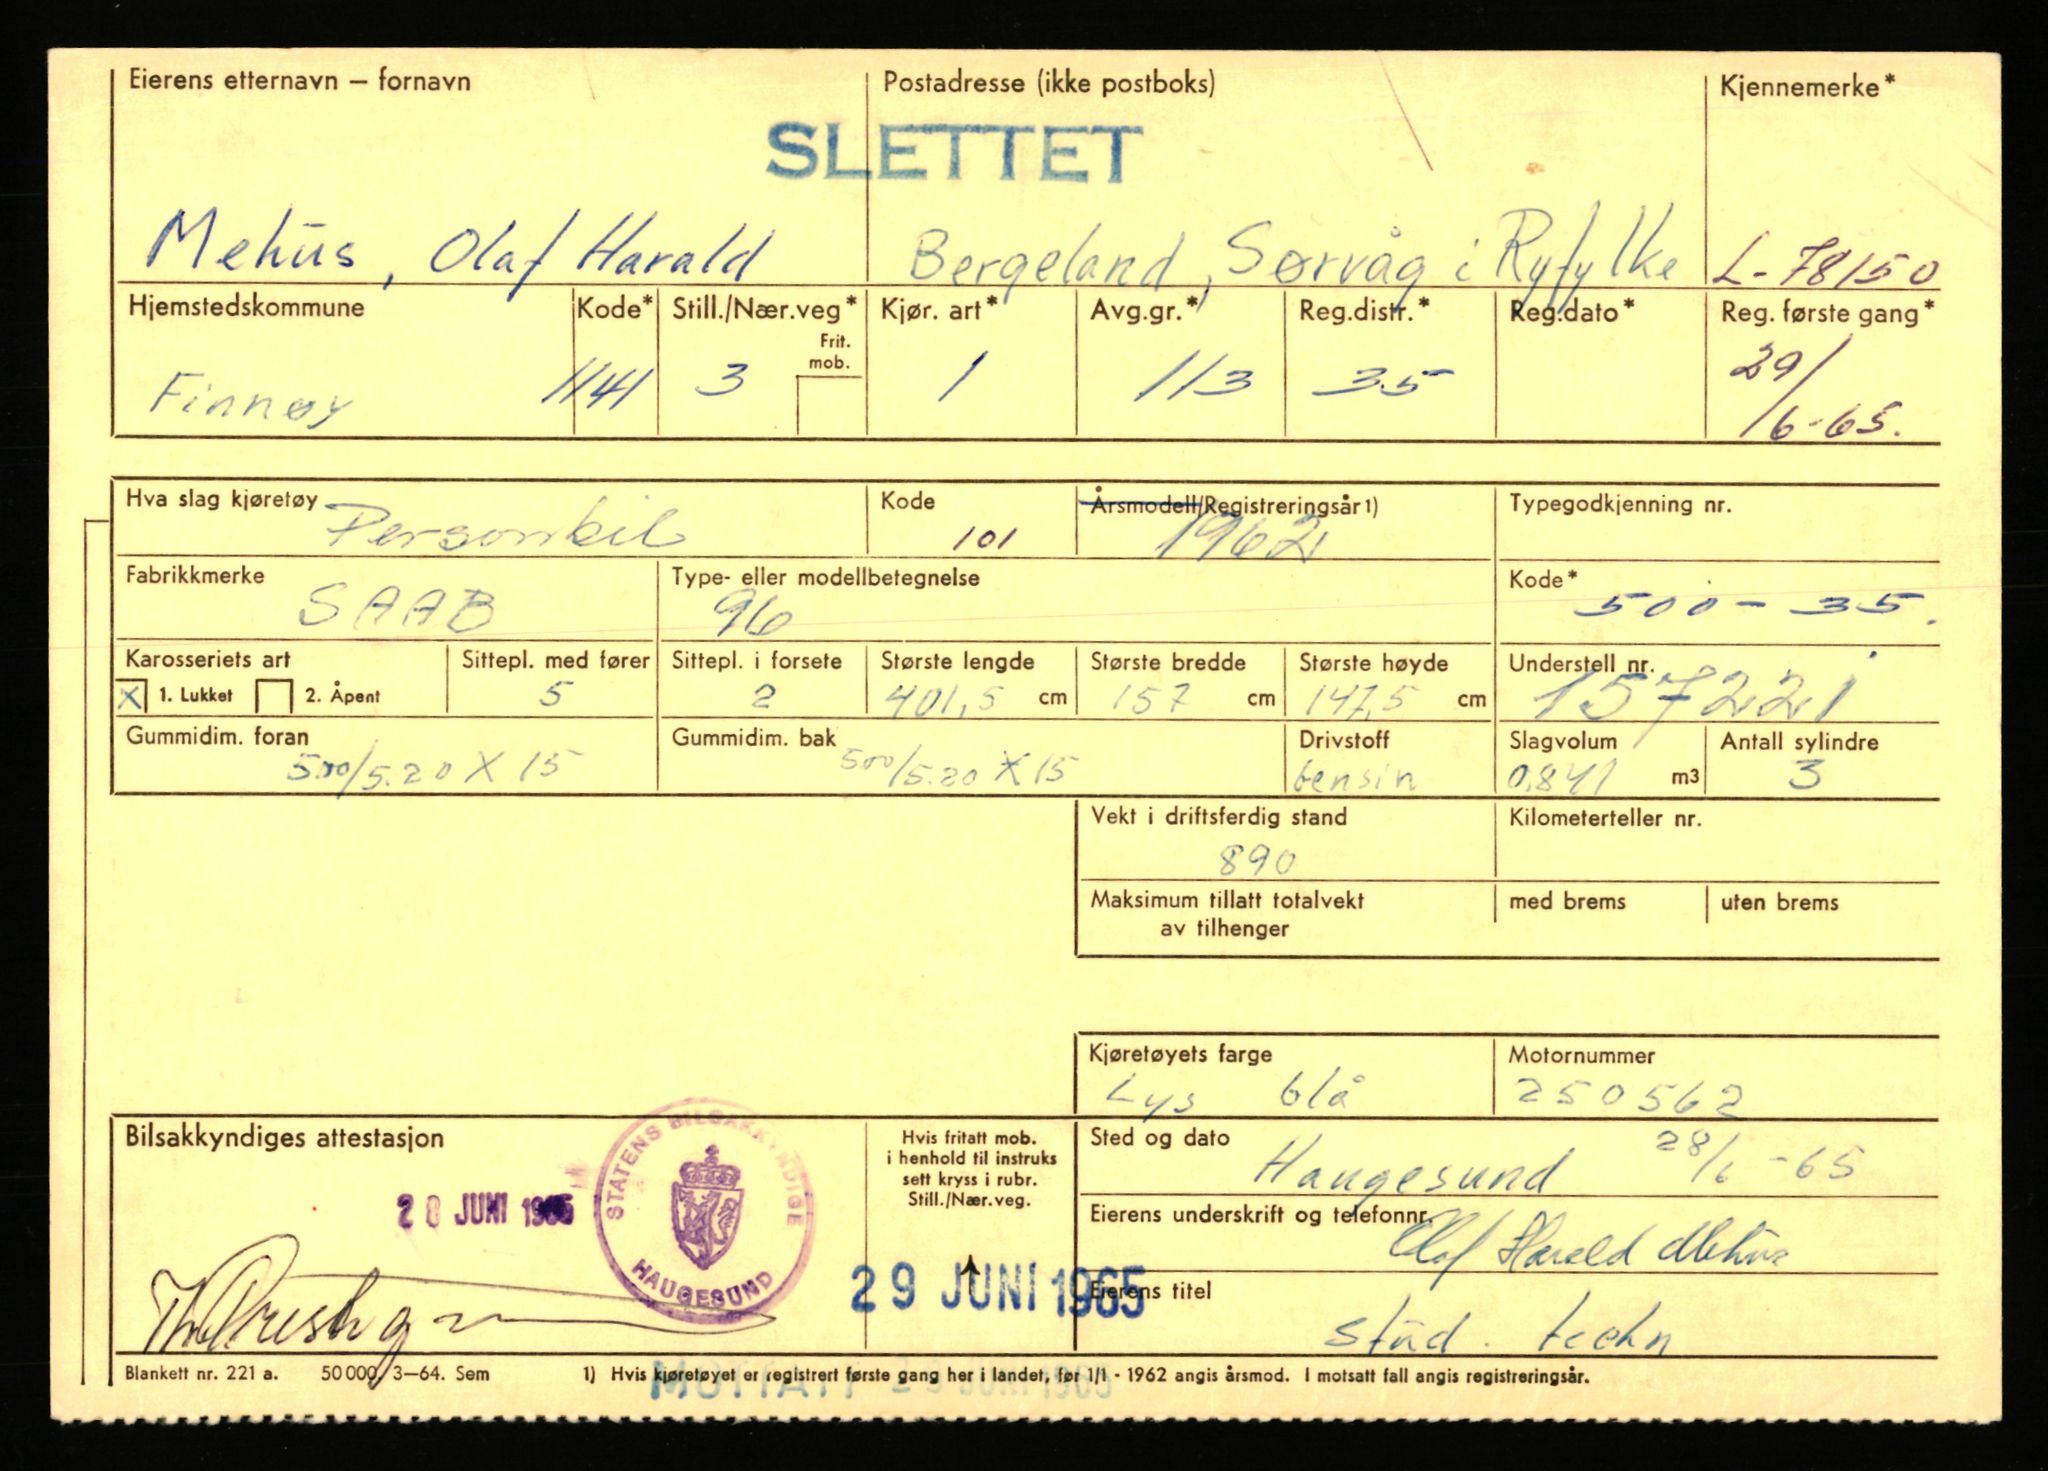 Eierens etternavn — fornavn Postadresse (ikke postboks) Kjennemerke*
SLETTET
Mehus, Olaf Harald Bergeland, Sørvåg i Ryfylke L-78150
Hjemstedskommune Kode* Still./Nær.veg* Kjør. art* Avg.gr.* Reg.distr.* Reg.dato* Reg. første gang*
Frit. mob.
Finnøy 1141 3 1 113 35 29/6-65.
Hva slag kjøretøy Personbil Kode 101 Årsmodell/Registreringsår 1) 1962 Typegodkjenning nr.
Fabrikkmerke SAAB Type- eller modellbetegnelse 96 Kode* 500-35.
Karosseriets art Sittepl. med fører Sittepl. i forsete Største lengde Største bredde Største høyde Understell nr.
X 1. Lukket 2. Åpent 5 2 401,5 cm 157 cm 147,5 cm 157221
Gummidim. foran Gummidim. bak Drivstoff Slagvolum Antall sylindre
500/5.20 X 15 500/5.20 X 15 bensin 0,841 m3 3
Vekt i driftsferdig stand Kilometerteller nr.
890
Maksimum tillatt totalvekt med brems uten brems
av tilhenger
Kjøretøyets farge Motornummer
Lys blå 250562
Bilsakkyndiges attestasjon
STATENS BILSAKKYNDIGE
HAUGESUND
28 JUNI 1965
Hvis fritatt mob.
i henhold til instruks
sett kryss i rubr.
Still./Nær.veg.
29 JUNI 1965
Sted og dato Haugesund 28/6-65
Eierens underskrift og telefonnr.
Olaf Harald Mehus
Eierens titel
stud. techn
Blankett nr. 221 a. 50 000. 3—64. Sem 1) Hvis kjøretøyet er registrert første gang her i landet, før 1/1 - 1962 angis årsmod. I motsatt fall angis registreringsår.
MOTTATT 29 JUNI 1965